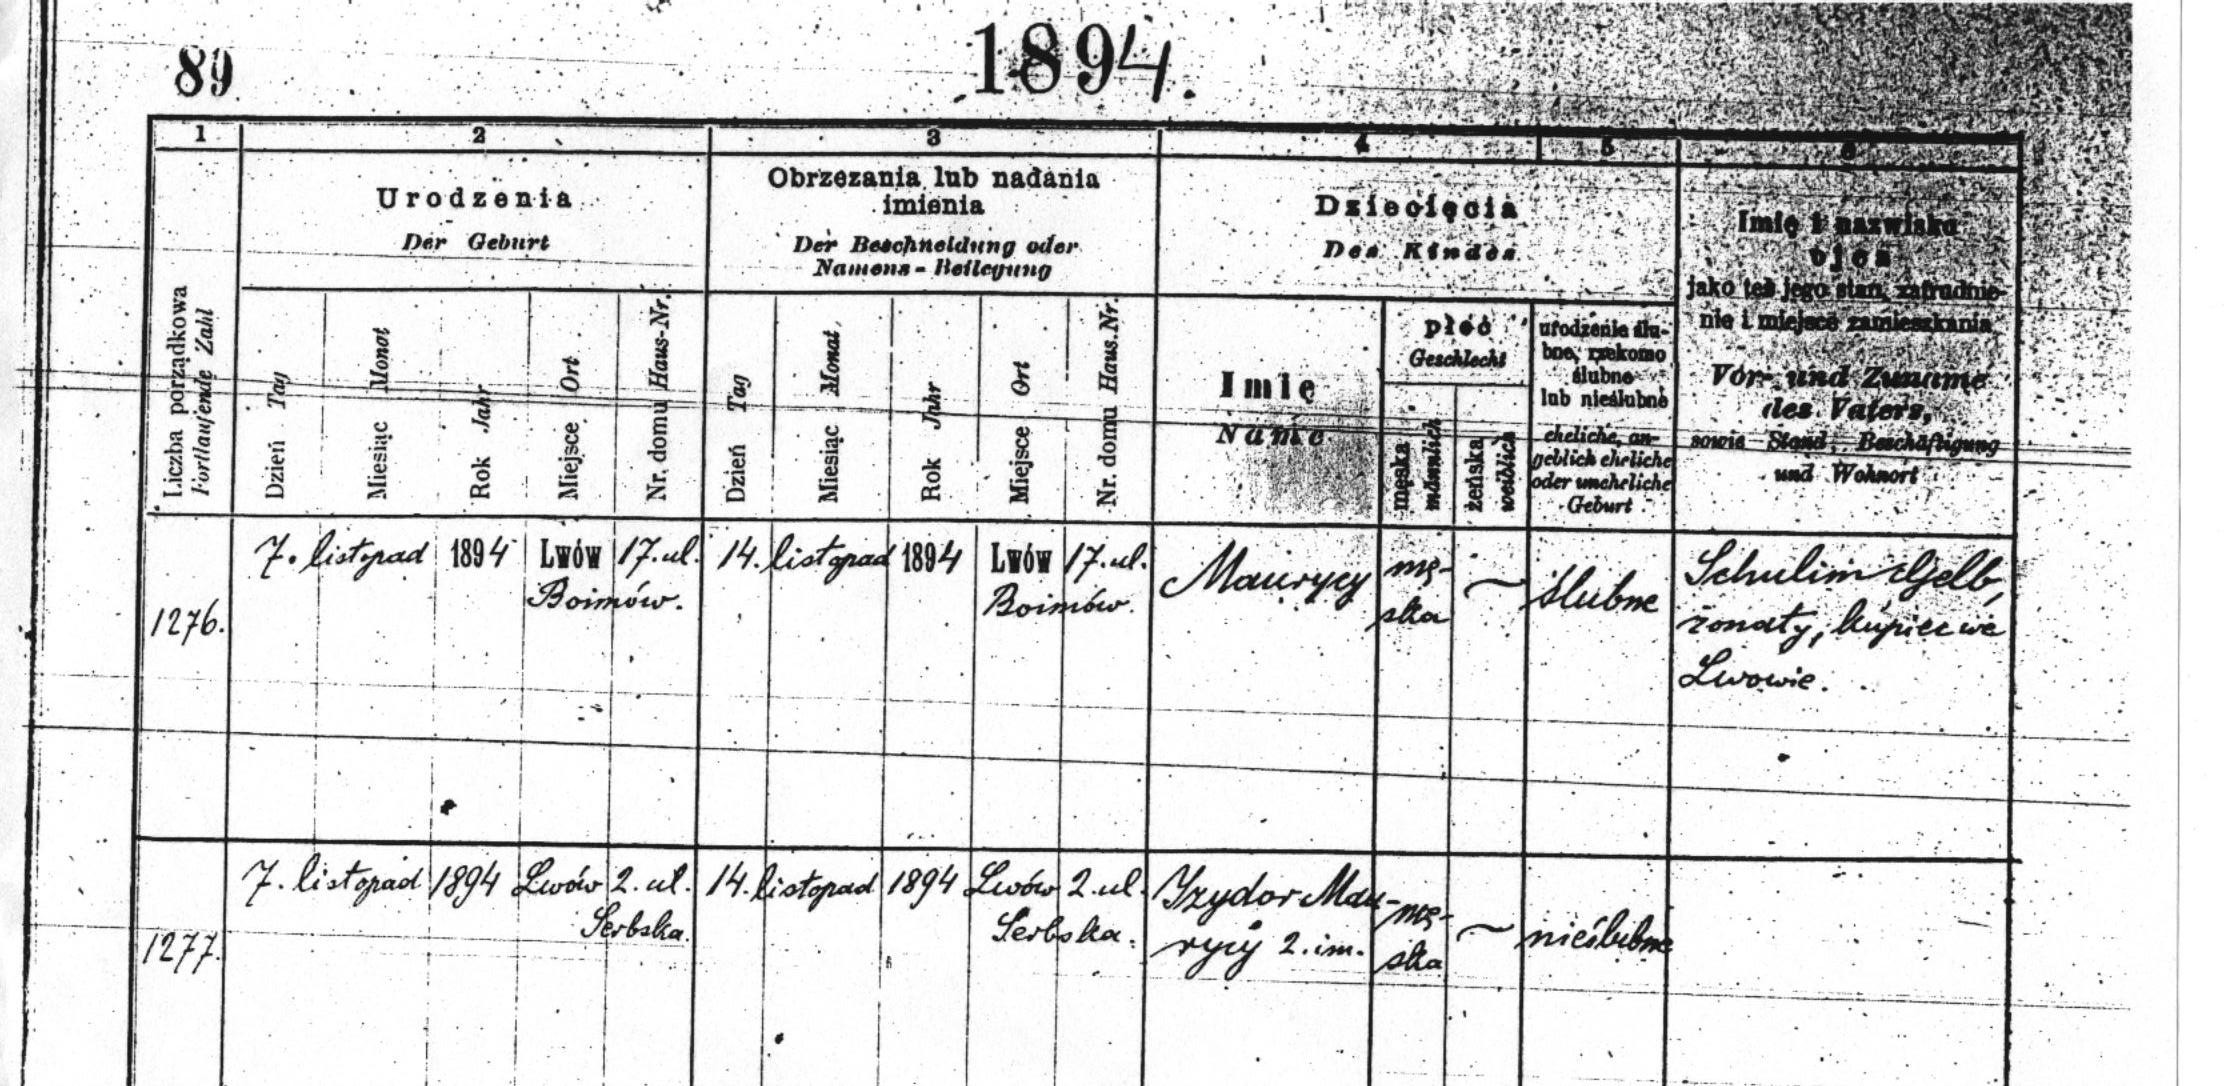 89
1894.
1
2
3
4
5
6
Liczba porządkowa
Fortlaufende Zahl
Urodzenia
Der Geburt
Dzień Tag
Miesiąc Monat
Rok Jahr
Miejsce Ort
Nr. domu Haus-Nr.
Obrzezania lub nadania
imienia
Der Beschneidung oder
Namens-Beilegung
Dzień Tag
Miesiąc Monat
Rok Jahr
Miejsce Ort
Nr. domu Haus.Nr.
Dziecięcia
Des Kindes
Imię
Name
płeć
Geschlecht
męska
männlich
żeńska
weiblich
urodzenie ślu-
bne, rzekomo
ślubne
lub nieślubne
eheliche, an-
geblich eheliche
oder uneheliche
Geburt
Imię i nazwisko
ojca
jako też jego stan, zatrudnie-
nie i miejsce zamieszkania
Vor- und Zuname
des Vaters,
sowie Stand, Beschäftigung
und Wohnort
1276.
7. listopad 1894 Lwów 17. ul.
Boimów.
14. listopad 1894 Lwów 17. ul.
Boimów.
Maurycy
mę-
ska
~
ślubne
Schulim Gjelb,
żonaty, kupiec we
Lwowie.
1277.
7. listopad 1894 Lwów 2. ul.
Serbska.
14. listopad 1894 Lwów 2. ul.
Serbska.
Izydor Mau-
rycy 2. im.
mę-
ska
~
nieślubne